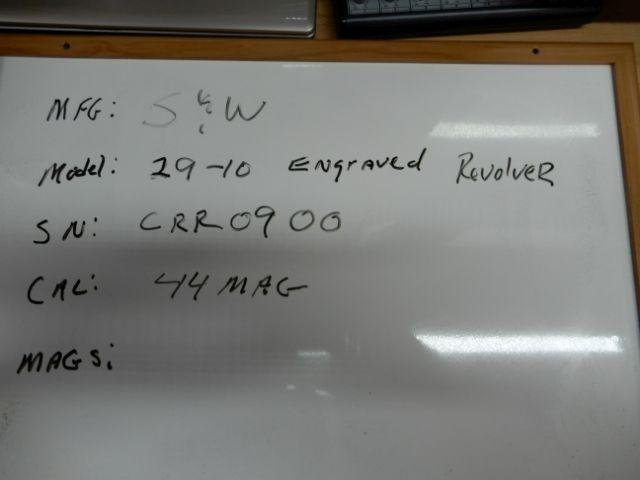 MFG: S & W
Model: 29-10 ENgraved RevolveR
SN: CRR0900
CAL: 44 MAG
MAGS: